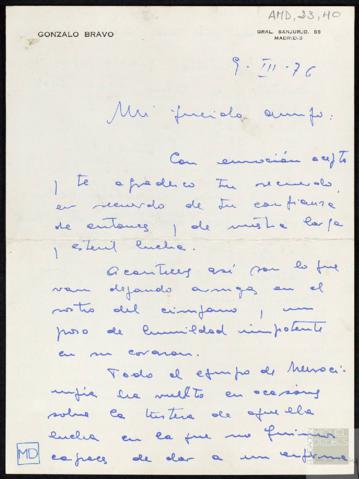 AMD, 23, 40
GONZALO BRAVO
GRAL. SANJURJO, 55
MADRID-3
9-III-76
Mi querido amigo:
Con emoción acepto
y te agradezco tu recuerdo,
en recuerdo de tu confianza
de entonces y de nuestra larga
y esteril lucha.
Aconteceres así son los que
van dejando arrugas en el
rostro del cirujano y un
poso de humildad impotente
en su corazon.
Todo el equipo de Neuroci-
rugia ha vuelto en ocasiones
sobre la de aquella
lucha en la que no fuimos
capaces de dar a un enfermo
MD